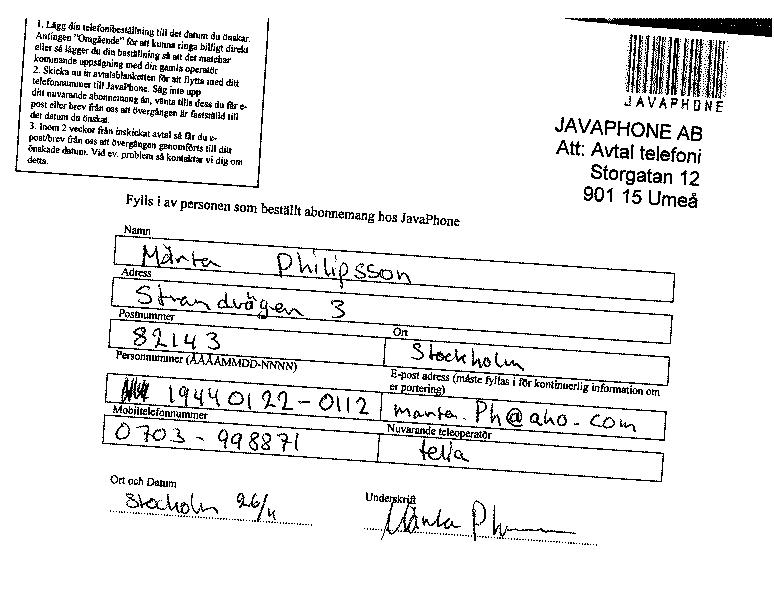 1. Lägg din telefonibeställning till det datum du önskar.
Antingen "Omgående" för att kunna ringa billigt direkt
eller så lägger du din beställning så att det matchar
kommande uppsägning med din gamla operatör
2. Skicka nu in avtalsblanketten för att flytta med ditt
telefonnummer till JavaPhone. Säg inte upp
ditt nuvarande abonnemang än, vänta tills dess du får e-
post eller brev från oss att övergången är fastställd till
det datum du önskat.
3. Inom 2 veckor från inskickat avtal så får du e-
post/brev från oss att övergången genomförts till ditt
önskade datum. Vid ev. problem så kontaktar vi dig om
detta.
JAVAPHONE
JAVAPHONE AB
Att: Avtal telefoni
Storgatan 12
901 15 Umeå
Fylls i av personen som beställt abonnemang hos JavaPhone
Namn
Märta Philipsson
Adress
Strandvägen 3
Postnummer
82143
Ort
Stockholm
Personnummer (ÅÅÅÅMMDD-NNNN)
19440122-0112
E-post adress (måste fyllas i för kontinuerlig information om
er portering)
marta.Ph@aho.com
Mobiltelefonnummer
0703-998871
Nuvarande teleoperatör
telia
Ort och Datum
Stocholm 26/4
Underskrift
Märta Ph